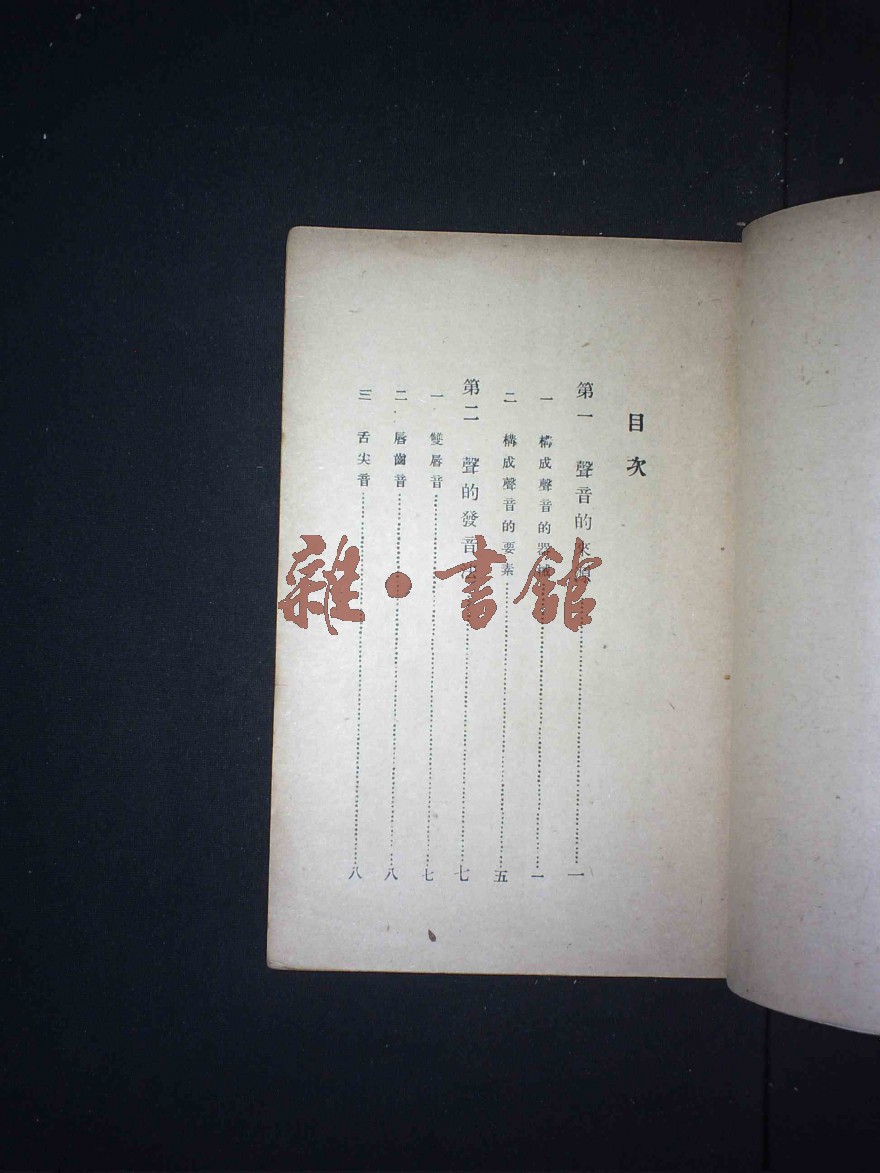 目次
第一 聲音的來源……一
一 構成聲音的器……一
二 構成聲音的要素……五
第二 聲的發音……七
一 雙唇音……七
二 唇齒音……八
三 舌尖音……八
雜·書館